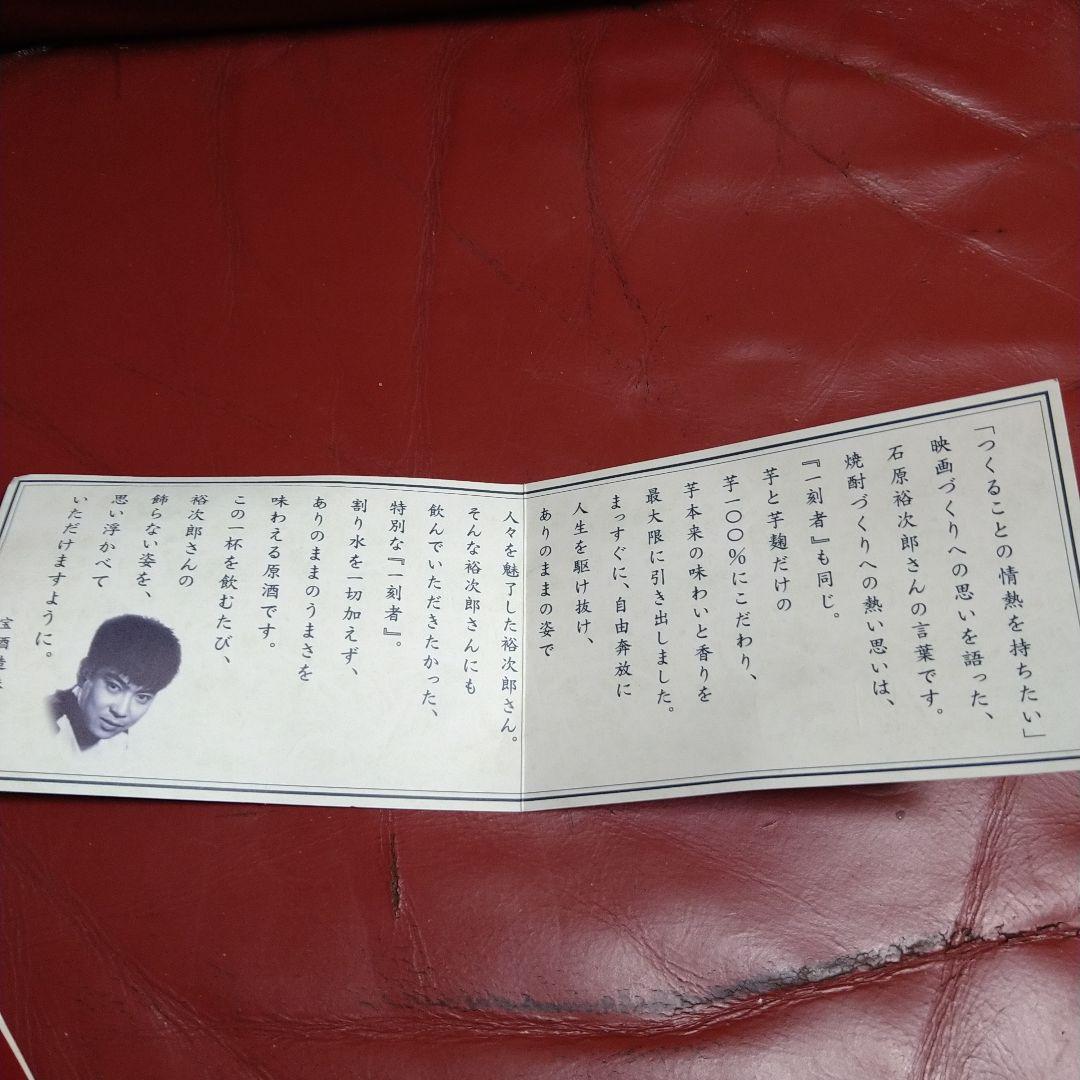 「つくることの情熱を持ちたい」
映画づくりへの思いを語った、
石原裕次郎さんの言葉です。
焼酎づくりへの熱い思いは、
『一刻者』も同じ。
芋と芋麹だけの
芋一〇〇％にこだわり、
芋本来の味わいと香りを
最大限に引き出しました。
まっすぐに、自由奔放に
人生を駆け抜け、
ありのままの姿で
人々を魅了した裕次郎さん。
そんな裕次郎さんにも
飲んでいただきたかった、
特別な『一刻者』。
割り水を一切加えず、
ありのままのうまさを
味わえる原酒です。
この一杯を飲むたび、
裕次郎さんの
飾らない姿を、
思い浮かべて
いただけますように。
宝酒造